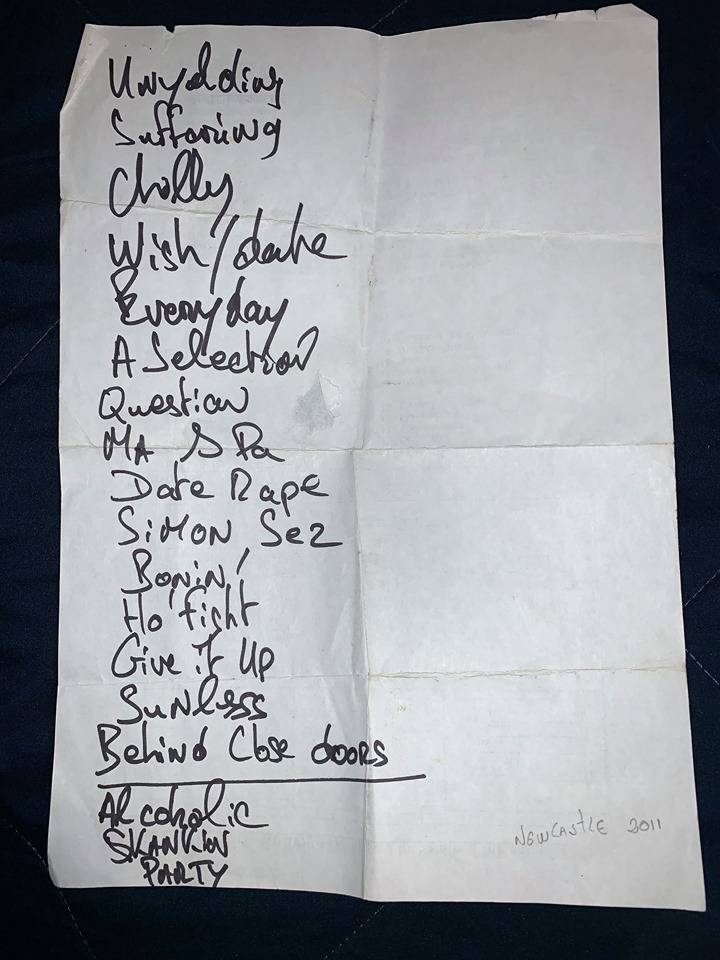 Unyelding
Suffering
Cholly
Wish/date
Everyday
A Selection
Question
MA & Pa
Date Rape
SiMON Sez
Bonin'
Ho' fight
Give iT Up
SuNless
Behind Close dooRs
Alcoholic
SKANKIN
PARTY
NEWCASTLE 2011